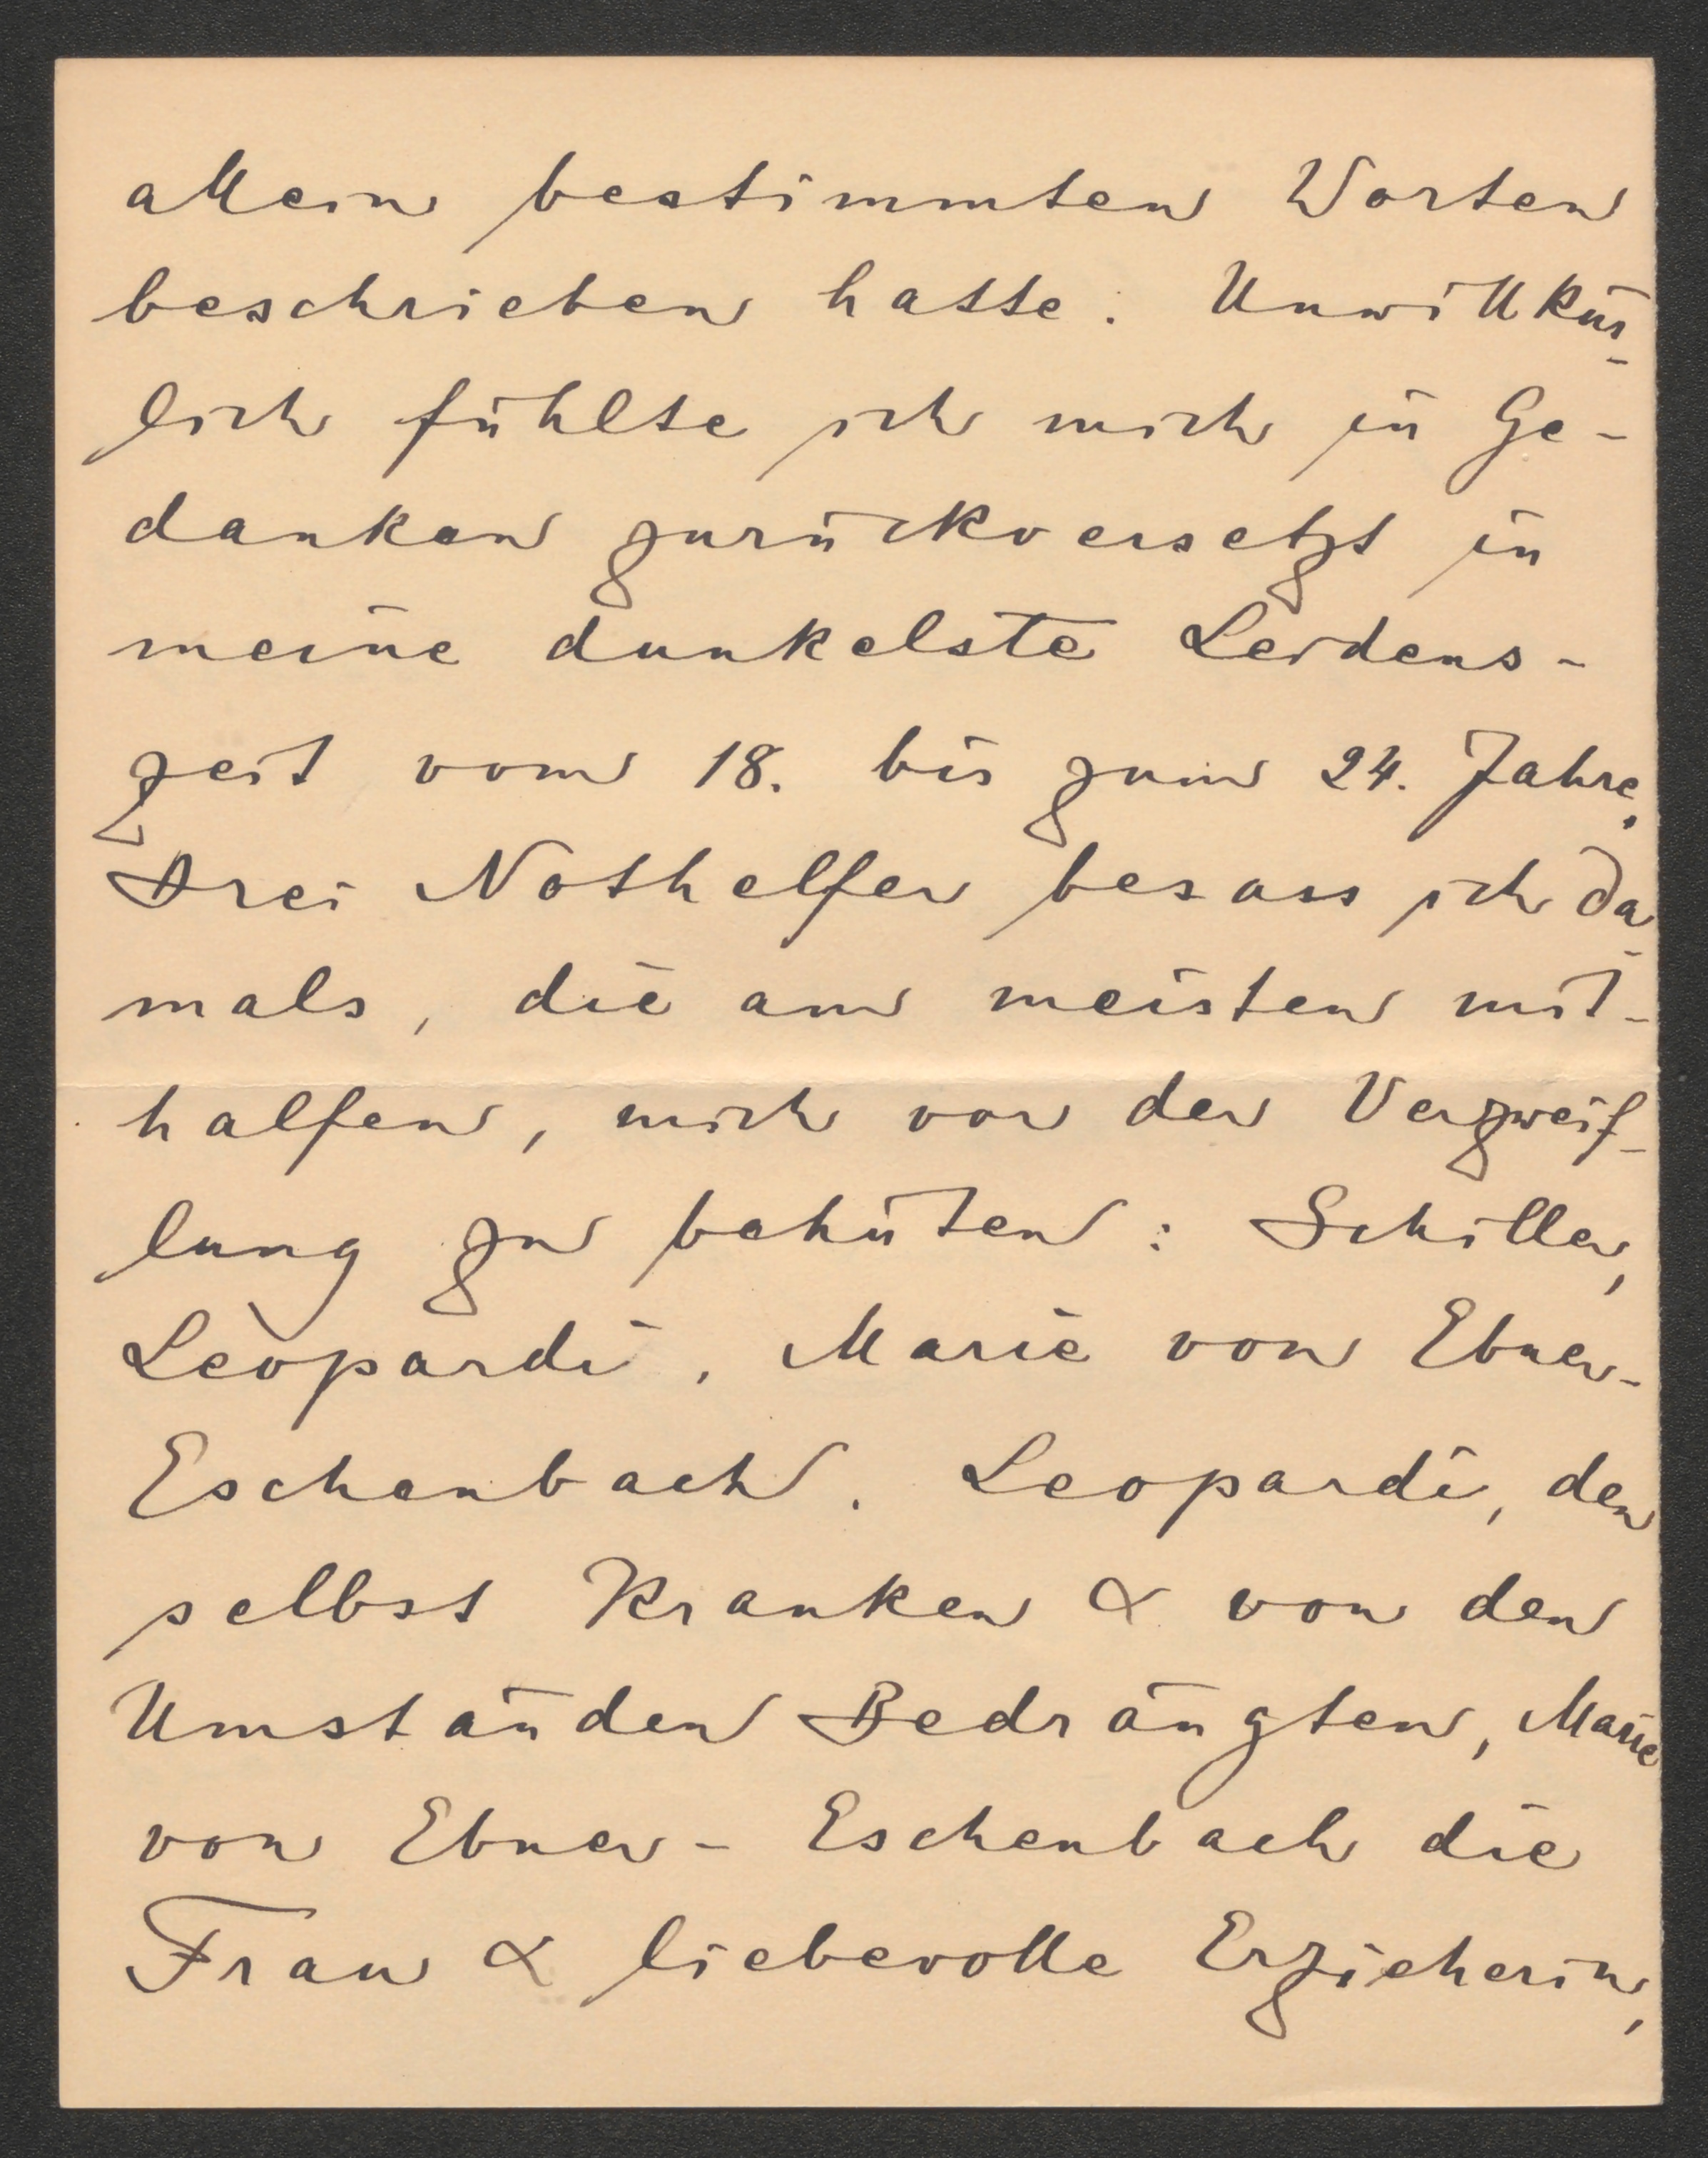 allein bestimmten Worten
beschrieben hatte. Unwillkür-
lich fühlte ich mich in Ge-
danken zurückversetzt in
meine dunkelste Leidens-
zeit vom 18. bis zum 24. Jahre.
Drei Nothelfer besass ich da-
mals, die am meisten mit-
halfen, mich vor der Verzweif-
lung zu behüten: Schiller,
Leopardi, Marie von Ebner-
Eschenbach. Leopardi, den
selbst Kranken & von den
Umständen Bedrängten, Marie
von Ebner-Eschenbach die
Frau & liebevolle Erzieherin,